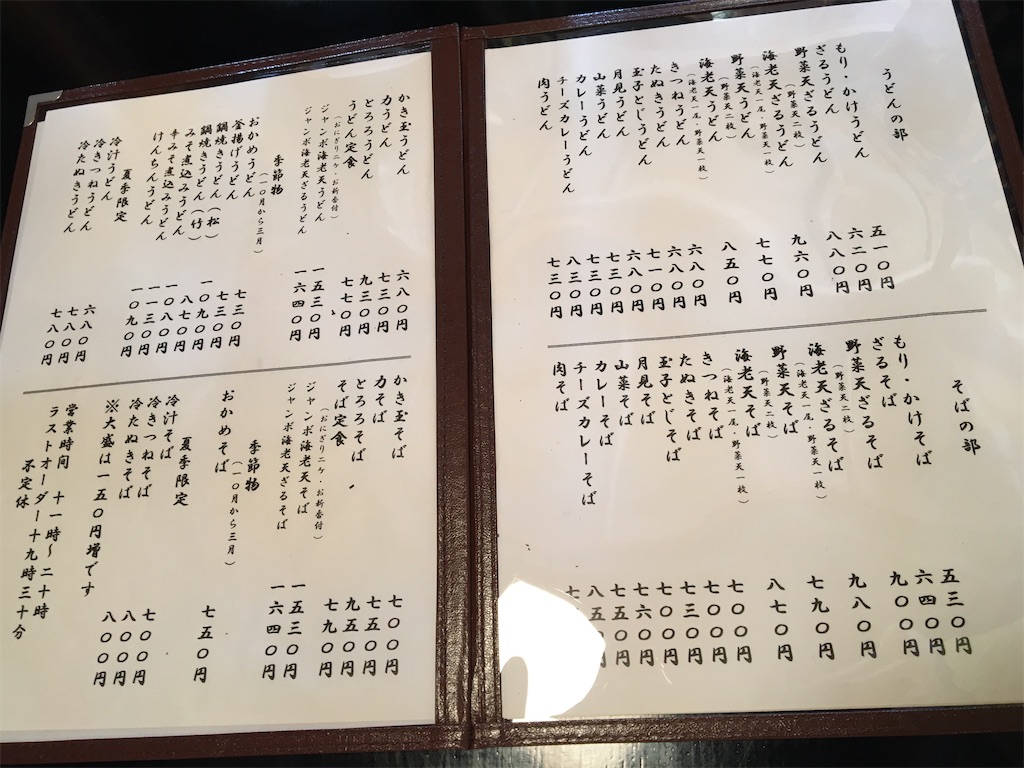 うどんの部
もり・かけうどん 五一〇円
ざるうどん 六二〇円
野菜天ざるうどん 八八〇円
(野菜天二枚)
海老天ざるうどん 九六〇円
(海老天一尾・野菜天一枚)
野菜天うどん 七七〇円
(野菜天二枚)
海老天うどん 八五〇円
(海老天一尾・野菜天一枚)
きつねうどん 六八〇円
たぬきうどん 六八〇円
玉子とじうどん 七一〇円
月見うどん 六八〇円
山菜うどん 七三〇円
カレーうどん 七三〇円
チーズカレーうどん 八三〇円
肉うどん 七三〇円
そばの部
もり・かけそば 五三〇円
ざるそば 六四〇円
野菜天ざるそば 九〇〇円
(野菜天二枚)
海老天ざるそば 九八〇円
(海老天一尾・野菜天一枚)
野菜天そば 七九〇円
(野菜天二枚)
海老天そば 八七〇円
(海老天一尾・野菜天一枚)
きつねそば 七〇〇円
たぬきそば 七〇〇円
玉子とじそば 七三〇円
月見そば 七〇〇円
山菜そば 七六〇円
カレーそば 七五〇円
チーズカレーそば 八五〇円
肉そば
かき玉うどん 六八〇円
力うどん 七三〇円
とろろうどん 九三〇円
うどん定食 七七〇円
(おにぎり二ケ・お新香付)
ジャンボ海老天うどん 一五三〇円
ジャンボ海老天ざるうどん 一六四〇円
季節物
(一〇月から三月)
おかめうどん 七三〇円
釜揚げうどん 七三〇円
鍋焼きうどん(松) 一〇九〇円
鍋焼きうどん(竹) 八七〇円
みそ煮込みうどん 一〇八〇円
辛みそ煮込みうどん 一一三〇円
けんちんうどん 一〇九〇円
夏季限定
冷汁うどん 六八〇円
冷きつねうどん 七八〇円
冷たぬきうどん 七八〇円
かき玉そば 七〇〇円
力そば 七五〇円
とろろそば 九五〇円
そば定食 七九〇円
(おにぎり二ケ・お新香付)
ジャンボ海老天そば 一五三〇円
ジャンボ海老天ざるそば 一六四〇円
季節物
(一〇月から三月)
おかめそば 七五〇円
夏季限定
冷汁そば 七〇〇円
冷きつねそば 八〇〇円
冷たぬきそば 八〇〇円
※大盛は一五〇円増です
営業時間 十一時～二十時
ラストオーダー十九時三十分
不定休